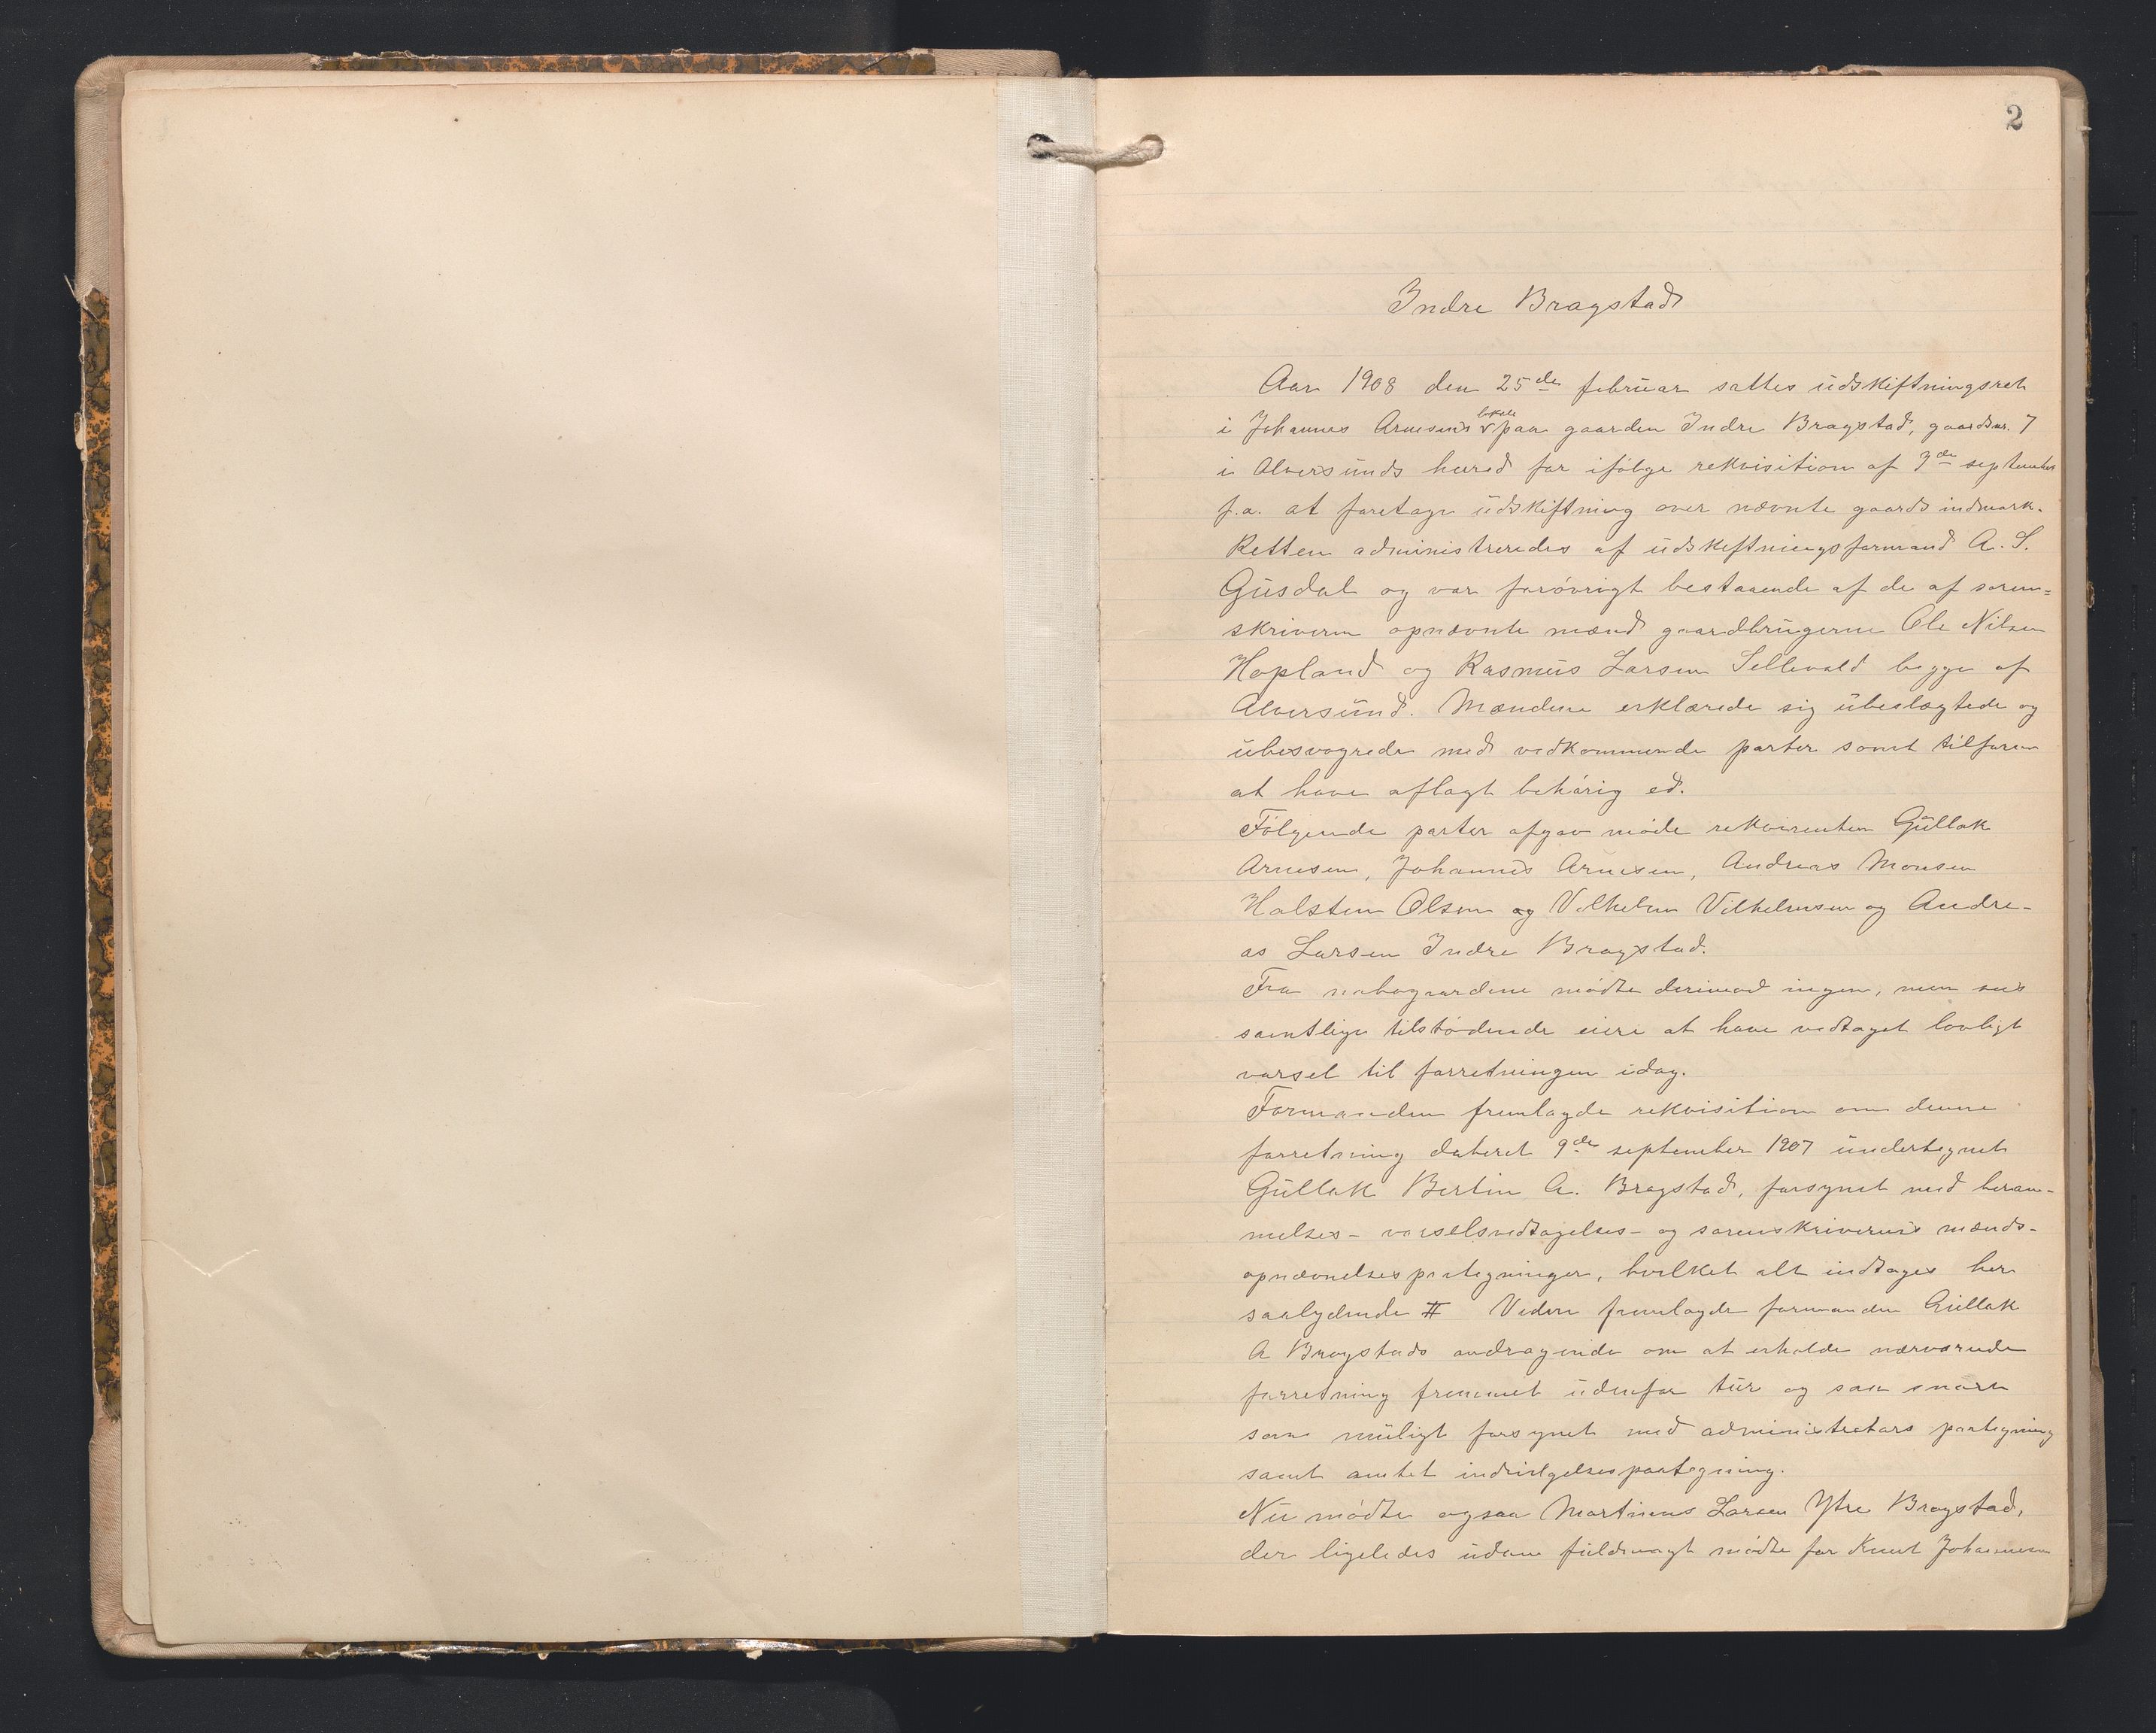 2
Indre Bragstad
Aar 1908 den 25de februar sattes udskiftningsret
i Johannes Arnesens lokale paa gaarden Indre Bragstad, gaardsnr. 7
i Alversunds hered for ifølge rekvisition af 9de september
f.a. at foretage udskiftning over nævnte gaards indmark.
Retten administreredes af udskiftningsformand A. S.
Gusdal og var forøvrigt bestaaende af de af soren=
skriveren opnævnte mænd gaardbrugerne Ole Nilsen
Hopland og Rasmus Larsen Sellevold begge af
Alversund. Mændene erklærede sig ubeslægtede og
ubesvogrede med vedkommende parter samt tilforn
at have aflagt behørig ed.
Følgende parter afgav møde rekvirenten Gullak
Arnesen, Johannes Arnesen, Andreas Monsen
Halsten Olsen og Vilhelm Vilhelmsen og Andre-
as Larsen Indre Bragstad.
Fra nabogaardene mødte derimod ingen, men
samtlige tilstødende eiere at have vedtaget lovligt
varsel til forretningen idag.
Formanden fremlagde rekvisition om denne
forretning dateret 9de september 1907 undertegnet
Gullak Bertin A. Bragstad, forsynet med beram-
melses- varselsvedtagelses- og sorenskriverens mænds-
opnævnelsespaategninger, hvilket alt indtages her
saalydende # Videre fremlagde formanden Gullak
A Bragstads andragende om at erholde nærværende
forretning fremmet udenfor tur og saa snart
som muligt forsynet med administrators paategning
samt amtet indvilgelsespaategning.
Nu mødte ogsaa Martinus Larsen Ytre Bragstad,
der ligeledes uden fuldmagt mødte for Knut Johannesen